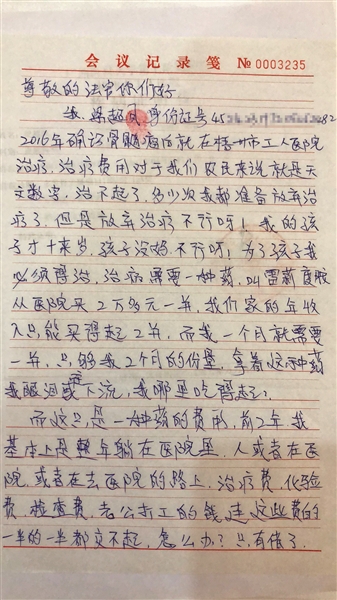 会议记录笺 №0003235
尊敬的法官你们好
我, 梁超凤, 身份证号45
2016年确诊骨髓瘤后就在梧州市工人医院
治疗, 治疗费用对于我们农民来说就是天
文数字, 治不起了, 多少次我都准备放弃治
疗了, 但是放弃治疗不行呀! 我的孩
子才十来岁, 孩子没妈不行呀, 为了孩子我
必须得治, 治病需要一种药, 叫雷莉度胺
从医院买2万多元一并, 我们家的年收
入只能买得起2并, 而我一个月就需要
一并, 只够我2个月的份量, 拿着这种药
我眼泪或下流, 我哪里吃得起?
而这只是一种药的费用, 前2年我
基本上是整年躺在医院里, 人或者在医
院, 或者在去医院的路上, 治疗费, 化验
费, 检查费, 老公打工的钱连这些费的
一半的一半都交不起, 怎么办? 只有借了.